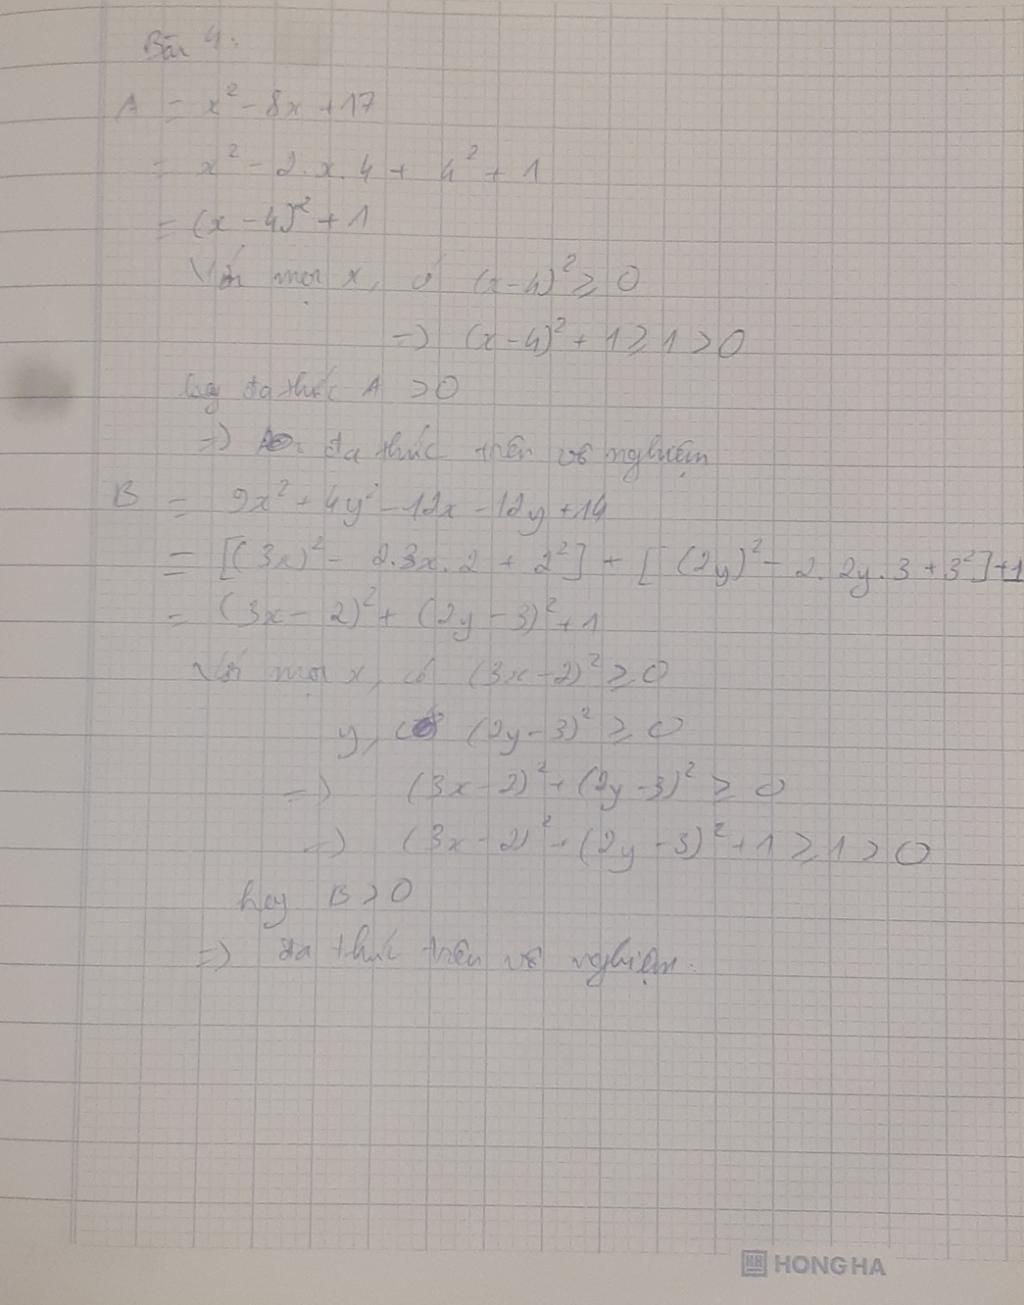 Bài 4:
A = x² - 8x + 17
= x² - 2.x.4 + 4² + 1
= (x - 4)² + 1
Với mọi x, có (x-4)² ≥ 0
=> (x-4)² + 1 ≥ 1 > 0
hay đa thức A > 0
=> đa thức trên vô nghiệm
B = 9x² + 4y² - 12x - 12y + 14
= [(3x)² - 2.3x.2 + 2²] + [(2y)² - 2.2y.3 + 3²] + 1
= (3x - 2)² + (2y - 3)² + 1
Với mọi x, có (3x - 2)² ≥ 0
y, có (2y - 3)² ≥ 0
=> (3x - 2)² + (2y - 3)² ≥ 0
=> (3x - 2)² + (2y - 3)² + 1 ≥ 1 > 0
hay B > 0
=> đa thức trên vô nghiệm.
HONG HA